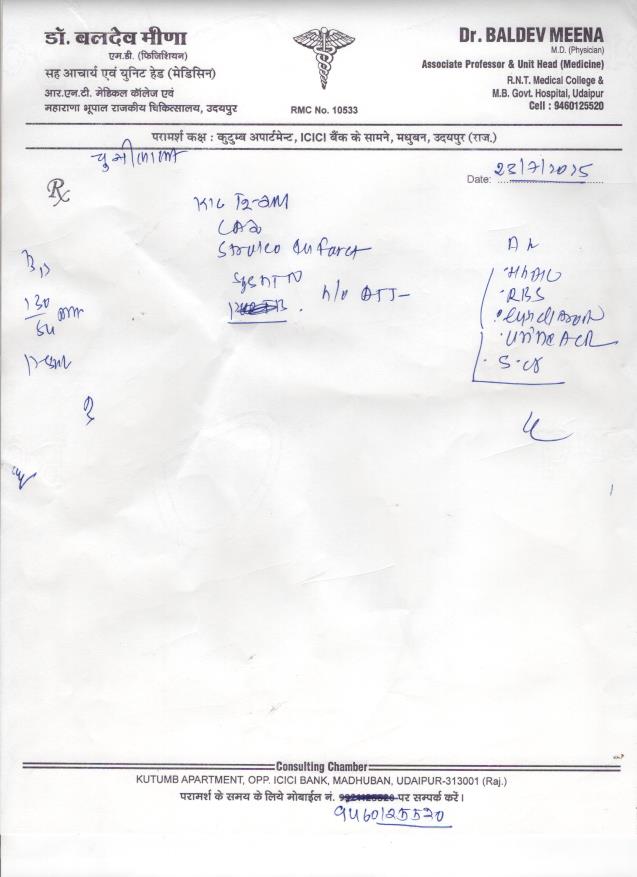 डॉ. बलदेव मीणा
एम.डी. (फिजिशियन)
सह आचार्य एवं युनिट हेड (मेडिसिन)
आर.एन.टी. मेडिकल कॉलेज एवं
महाराणा भूपाल राजकीय चिकित्सालय, उदयपुर
RMC No. 10533
Dr. BALDEV MEENA
M.D. (Physician)
Associate Professor & Unit Head (Medicine)
R.N.T. Medical College &
M.B. Govt. Hospital, Udaipur
Cell : 9460125520
परामर्श कक्ष : कुटुम्ब अपार्टमेन्ट, ICICI बैंक के सामने, मधुबन, उदयपुर (राज.)
Date: 23/7/2025
Rx
K/c T2-DM
CAD
SYS HTN
H/o ATT
130
HbA1C
RBS
Urine ACR
Consulting Chamber
KUTUMB APARTMENT, OPP. ICICI BANK, MADHUBAN, UDAIPUR-313001 (Raj.)
परामर्श के समय के लिये मोबाईल नं. पर सम्पर्क करें।
9460125520